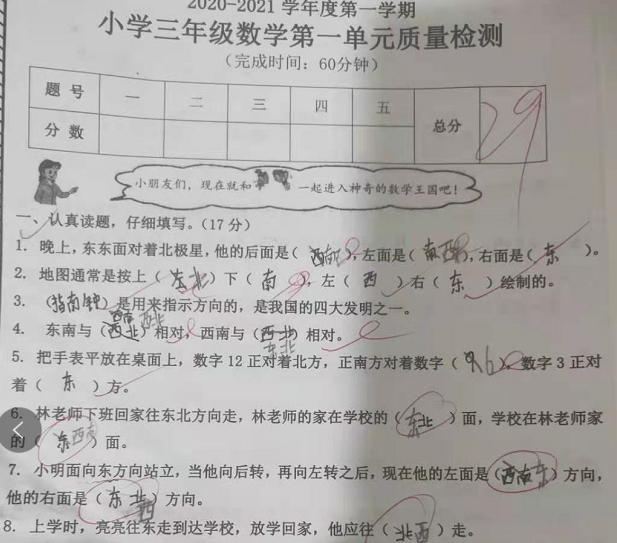 2020-2021 学年度第一学期
小学三年级数学第一单元质量检测
(完成时间：60分钟)
题号 一 二 三 四 五 总分
分数
小朋友们，现在就和 一起进入神奇的数学王国吧！
一、认真读题，仔细填写。(17分)
1. 晚上，东东面对着北极星，他的后面是( 南 )，左面是( 西 )，右面是( 东 )。
2. 地图通常是按上( 北 )下( 南 )，左( 西 )右( 东 )绘制的。
3. (指南针)是用来指示方向的，是我国的四大发明之一。
4. 东南与(西北)相对，西南与( )相对。
东北
5. 把手表平放在桌面上，数字12正对着北方，正南方对着数字( 6 )，数字3正对
着( 东 )方。
6. 林老师下班回家往东北方向走，林老师的家在学校的(东北)面，学校在林老师家
的( 西南 )面。
7. 小明面向东方向站立，当他向后转，再向左转之后，现在他的左面是( )方向，
他的右面是( )方向。
8. 上学时，亮亮往东走到达学校，放学回家，他应往( 西 )走。